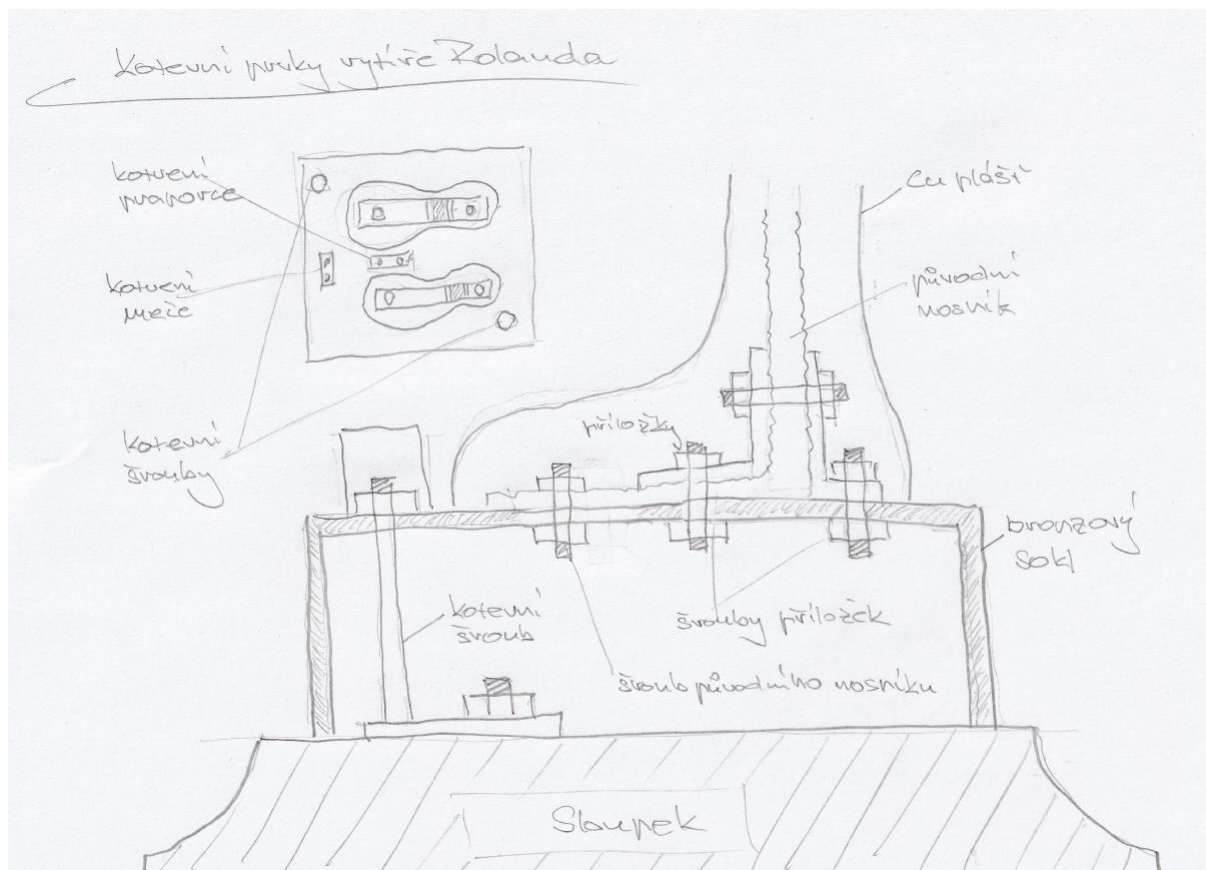 Kotevní prvky rytíře Rolanda
kotvení
praporce
kotvení
meče
kotevní
šrouby
Cu plášť
původní
nosník
příložky
bronzový
sokl
kotevní
šroub
šrouby příložek
šroub původního nosníku
Sloupek